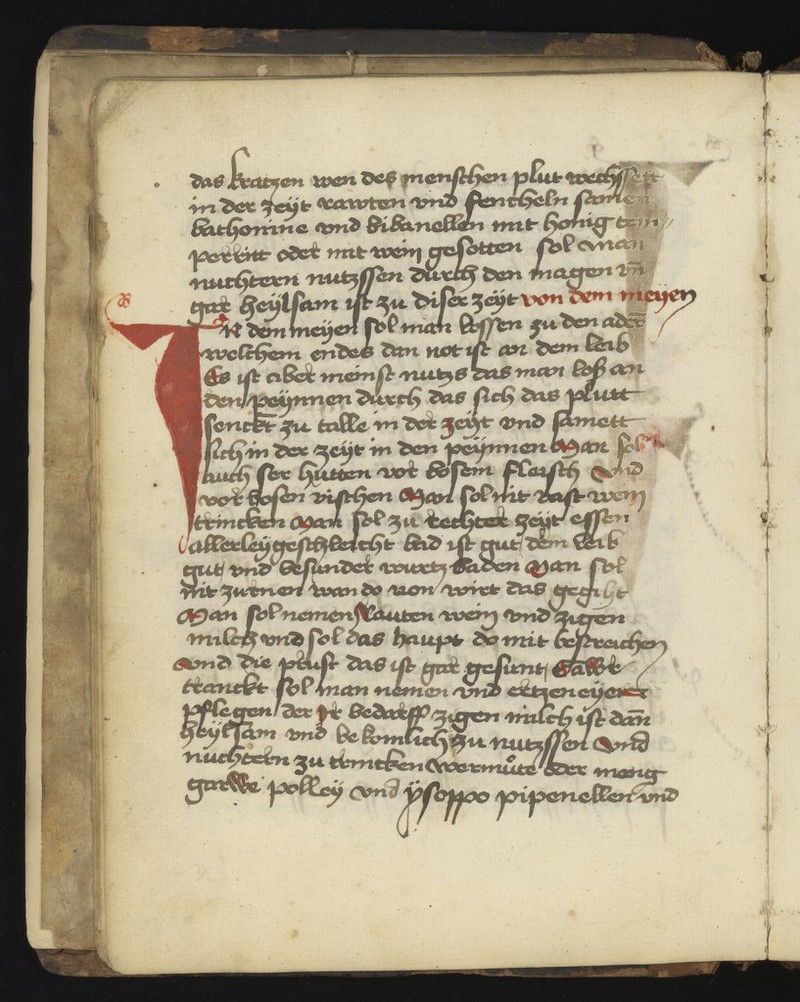 das kratzen wen des menschen plut wechssett
in der zeyt rawten vnd fencheln samen
bathonine vnd bibanellen mit honig tem⸗
perirtt oder mit wein gesotten sol man
nuchtern nutzssen durch den magen vn̄
gar heylsam ist zu diser zeyt von dem meyen
IN dem meyen sol man lossen zu den adern̄
welchem endes dan not ist an dem leib
Es ist aber meinst nutzs das man loß an
den peynnen durch das sich das plutt
senckt zu talle in der zeyt vnd samett
sich in der zeyt in den peynnen Man sol
auch ser hutten vor bosem fleisch Vnd
vor bosen vischen Man sol nit vast wein
trincken Man sol zu rechter zeyt essen
allerley geschlecht bad ist gut dem leib
gut vnd besunder wurtz baden Man sol
nit zurnen wan do von wirt das gegiht
Man sol nemen Rauten wein vnd zigen
milch vnd sol das haupt do mit bestreichen
Vnd die prust das ist gar gesunt
tranckt sol man nemen vnd ertzeneyen
pflegen der Ir bedarff zigen milch ist dan̄
heylsam vnd bekomlich zu nutzssen Vnd
nuchtern zu trincken wermůte oder meng
garwe polley vnd ÿsoppo pipenellen vnd